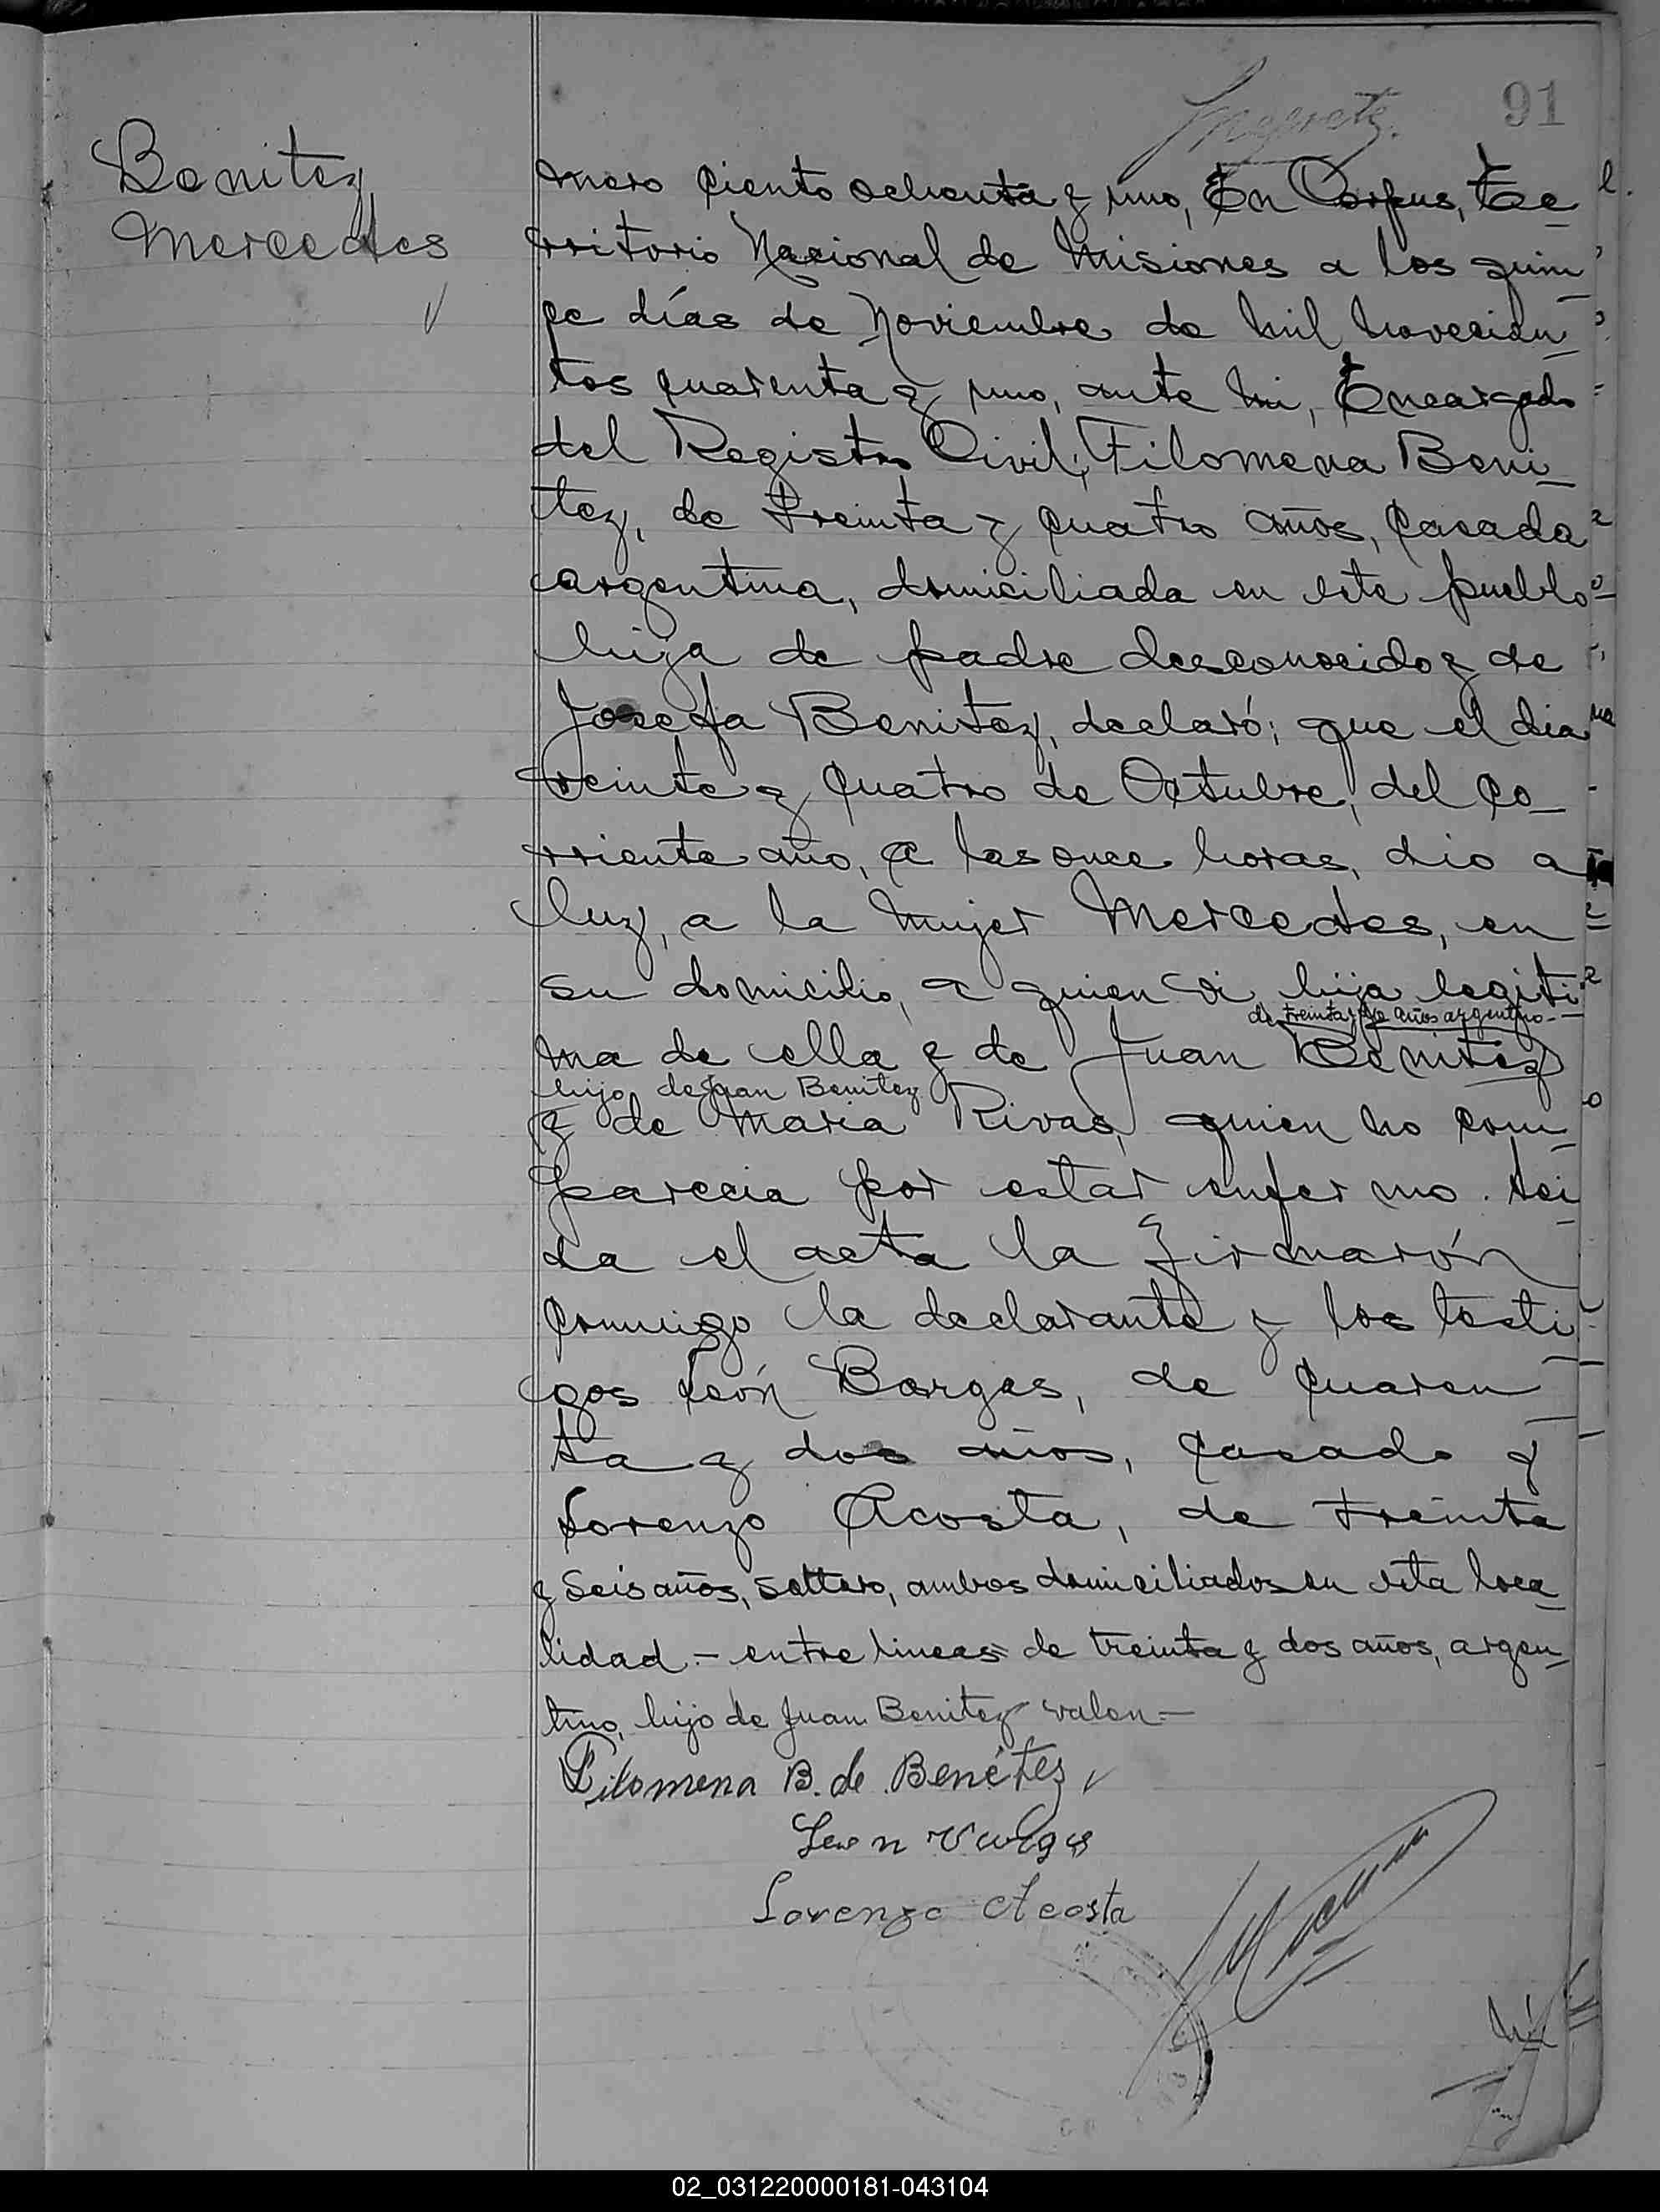 91
Benitez
Mercedes
mero ciento ochenta y uno, En Corpus, Te-
rritorio Nacional de Misiones a los quin-
ce días de Noviembre de mil novecien-
tos cuarenta y uno, ante mi, Encargado
del Registro Civil, Filomena Beni-
tez, de treinta y cuatro años, casada
argentina, domiciliada en este pueblo
hija de padre desconocido y de
Josefa Benitez, declaró; que el dia
veinte y cuatro de Octubre, del co-
rriente año, a las once horas, dio a
luz, a la mujer Mercedes, en
su domicilio, a quien di hija legiti-
de treinta y dos años argentino-
ma de ella y de Juan Benitez
hijo de Juan Benitez
y de Maria Rivas, quien no com-
parecia por estar enfermo. Lei-
da el acta la firmarón
conmigo la declarante y los testi-
gos León Bargas, de cuaren-
ta y dos años, casado y
Lorenzo Acosta, de treinta
y seis años, soltero, ambos domiciliados en esta loca-
lidad - entre lineas de treinta y dos años, argen-
tino, hijo de Juan Benitez valen=
Filomena B. de Benétez
Leon Vargas
Lorenzo Acosta
02_031220000181-043104